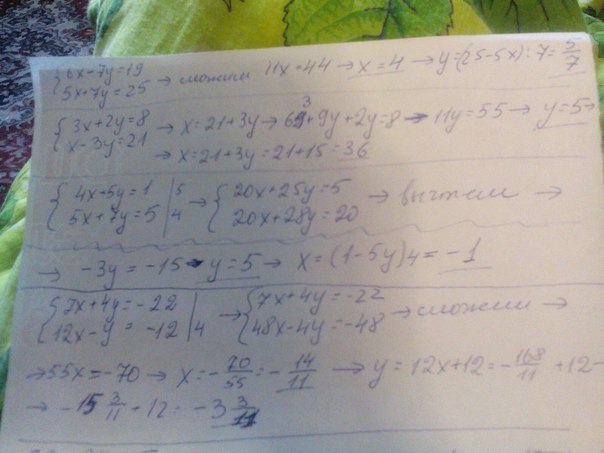 {6x-7y=19
5x+7y=25 → сложим 11x=44 → x=4 → y=(25-5x):7=5/7
{3x+2y=8
x-3y=21 → x=21+3y → 63+9y+2y=8 → 11y=55 → y=5 →
→ x=21+3y=21+15=36
{4x+5y=1 | 5
5x+7y=5 | 4 → {20x+25y=5
20x+28y=20 → вычтем →
→ -3y=-15 → y=5 → x=(1-5y)4=-1
{7x+4y=-22
12x-y=-12 | 4 → {7x+4y=-22
48x-4y=-48 → сложим →
→ 55x=-70 → x=-70/55=-14/11 → y=12x+12=-168/11+12=
→ -15 3/11+12=-3 3/11